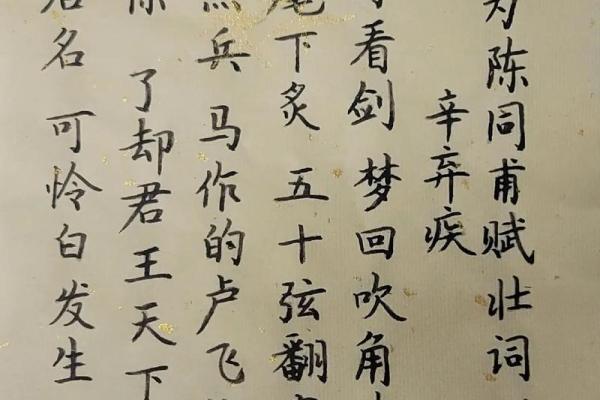 为陈同甫赋壮词
辛弃疾
看剑 梦回吹角
尾下炙 五十弦翻
点兵 马作的卢飞
了却君王天下
名 可怜白发生